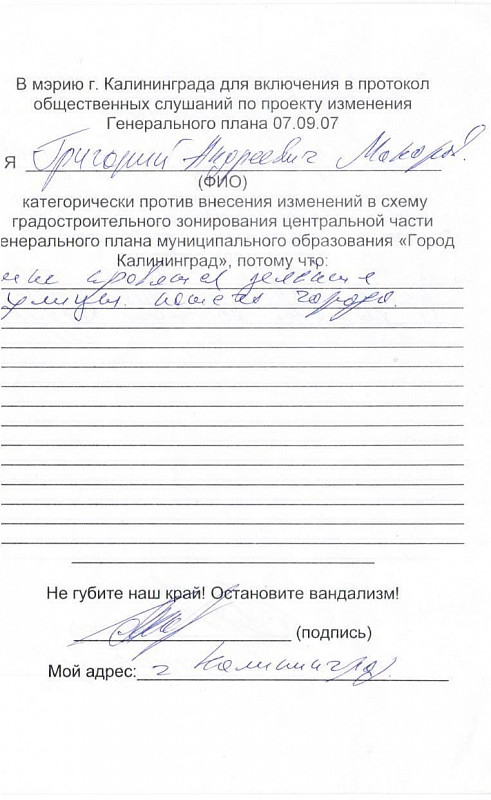 В мэрию г. Калининграда для включения в протокол
общественных слушаний по проекту изменения
Генерального плана 07.09.07
Я Григорий Андреевич Макаров
(ФИО)
категорически против внесения изменений в схему
градостроительного зонирования центральной части
енерального плана муниципального образования «Город
Калининград», потому что:
мне нравятся зелёные
улицы нашего города.
Не губите наш край! Остановите вандализм!
(подпись)
Мой адрес: г Калининград.